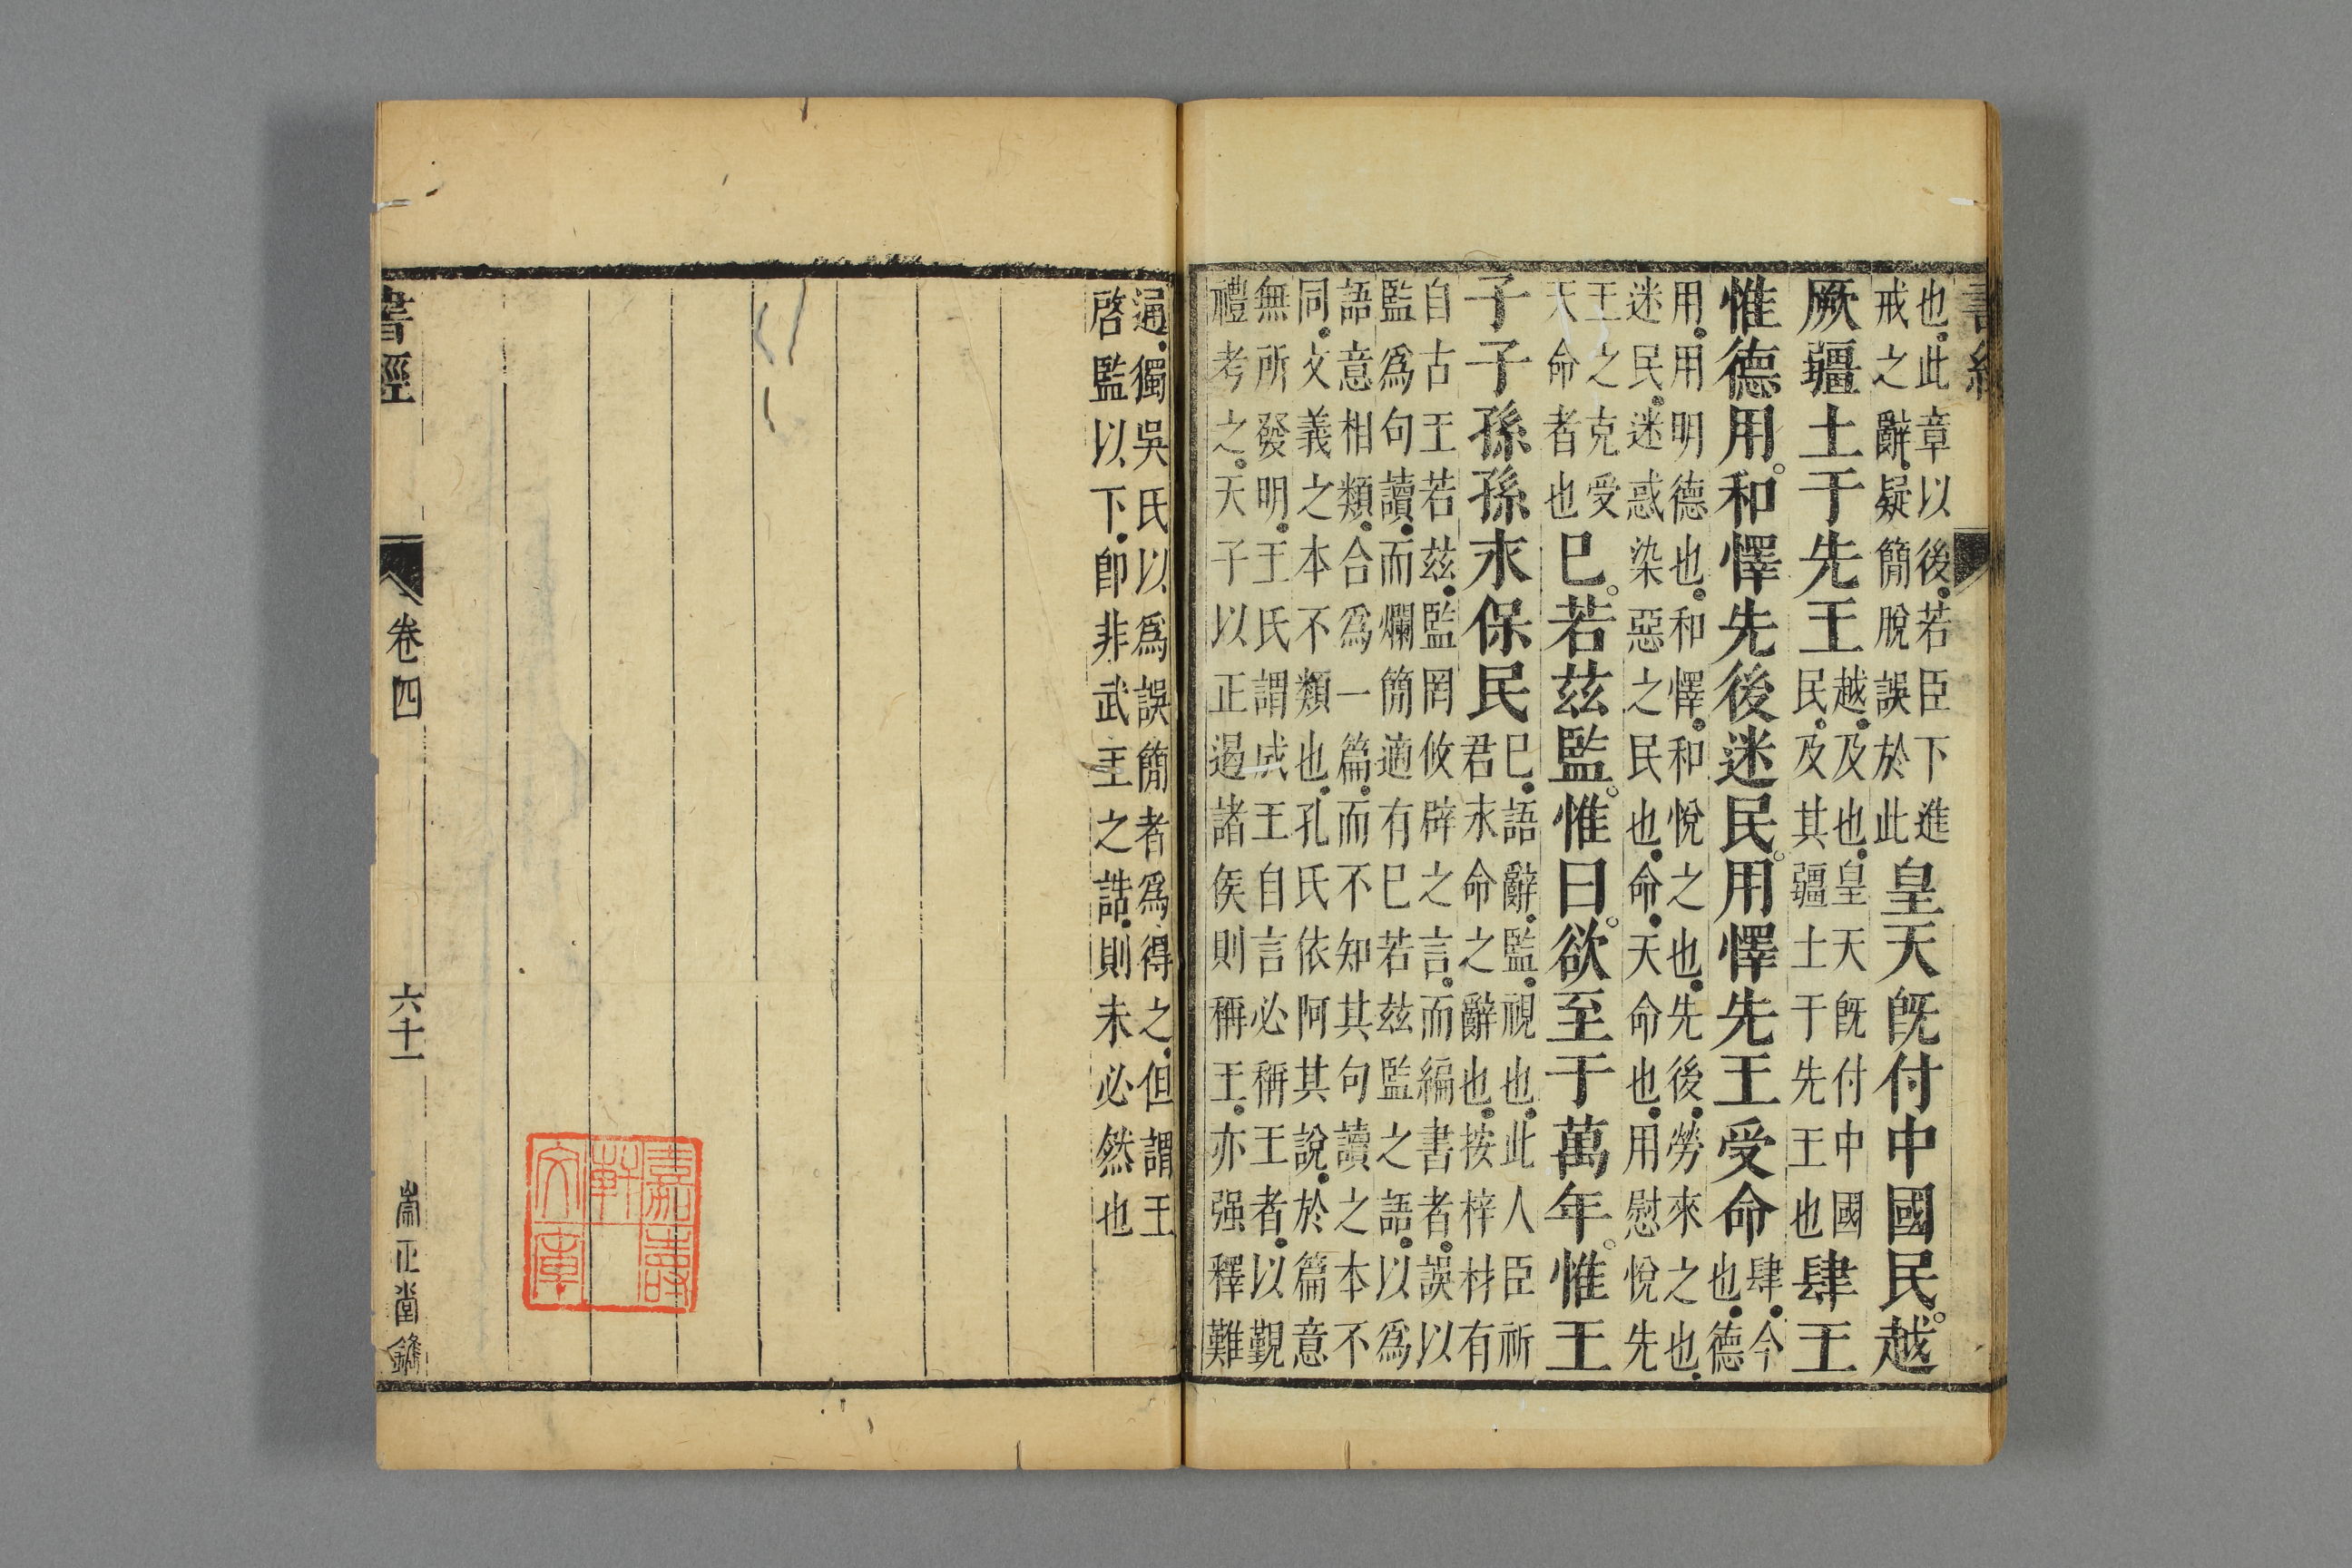 書經
也此章以後若臣下進
戒之辭疑簡脫誤於此
皇天旣付中國民越
厥疆土于先王
越及也皇天旣付中國
民及其疆土于先王也
肆王
惟德用和懌先後迷民用懌先王受命
肆今
也德
用用明德也和懌和悅之也先後勞來之也
迷民迷惑染惡之民也命天命也用慰悅先
王之克受
天命者也
已若茲監惟曰欲至于萬年惟王
子子孫孫永保民
已語辭監視也此人臣祈
君永命之辭也按梓材有
自古王若茲監罔攸辟之言而編書者誤以
監爲句讀而爛簡適有已若茲監之語以爲
語意相類合爲一篇而不知其句讀之本不
同文義之本不類也孔氏依阿其說於篇意
無所發明王氏謂成王自言必稱王者以覲
禮考之天子以正遏諸侯則稱王亦强釋難
通獨吳氏以爲誤簡者爲得之但謂王
啓監以下卽非武王之誥則未必然也
嘉壽軒文庫
書經 卷四 六十一 崇正堂鐫